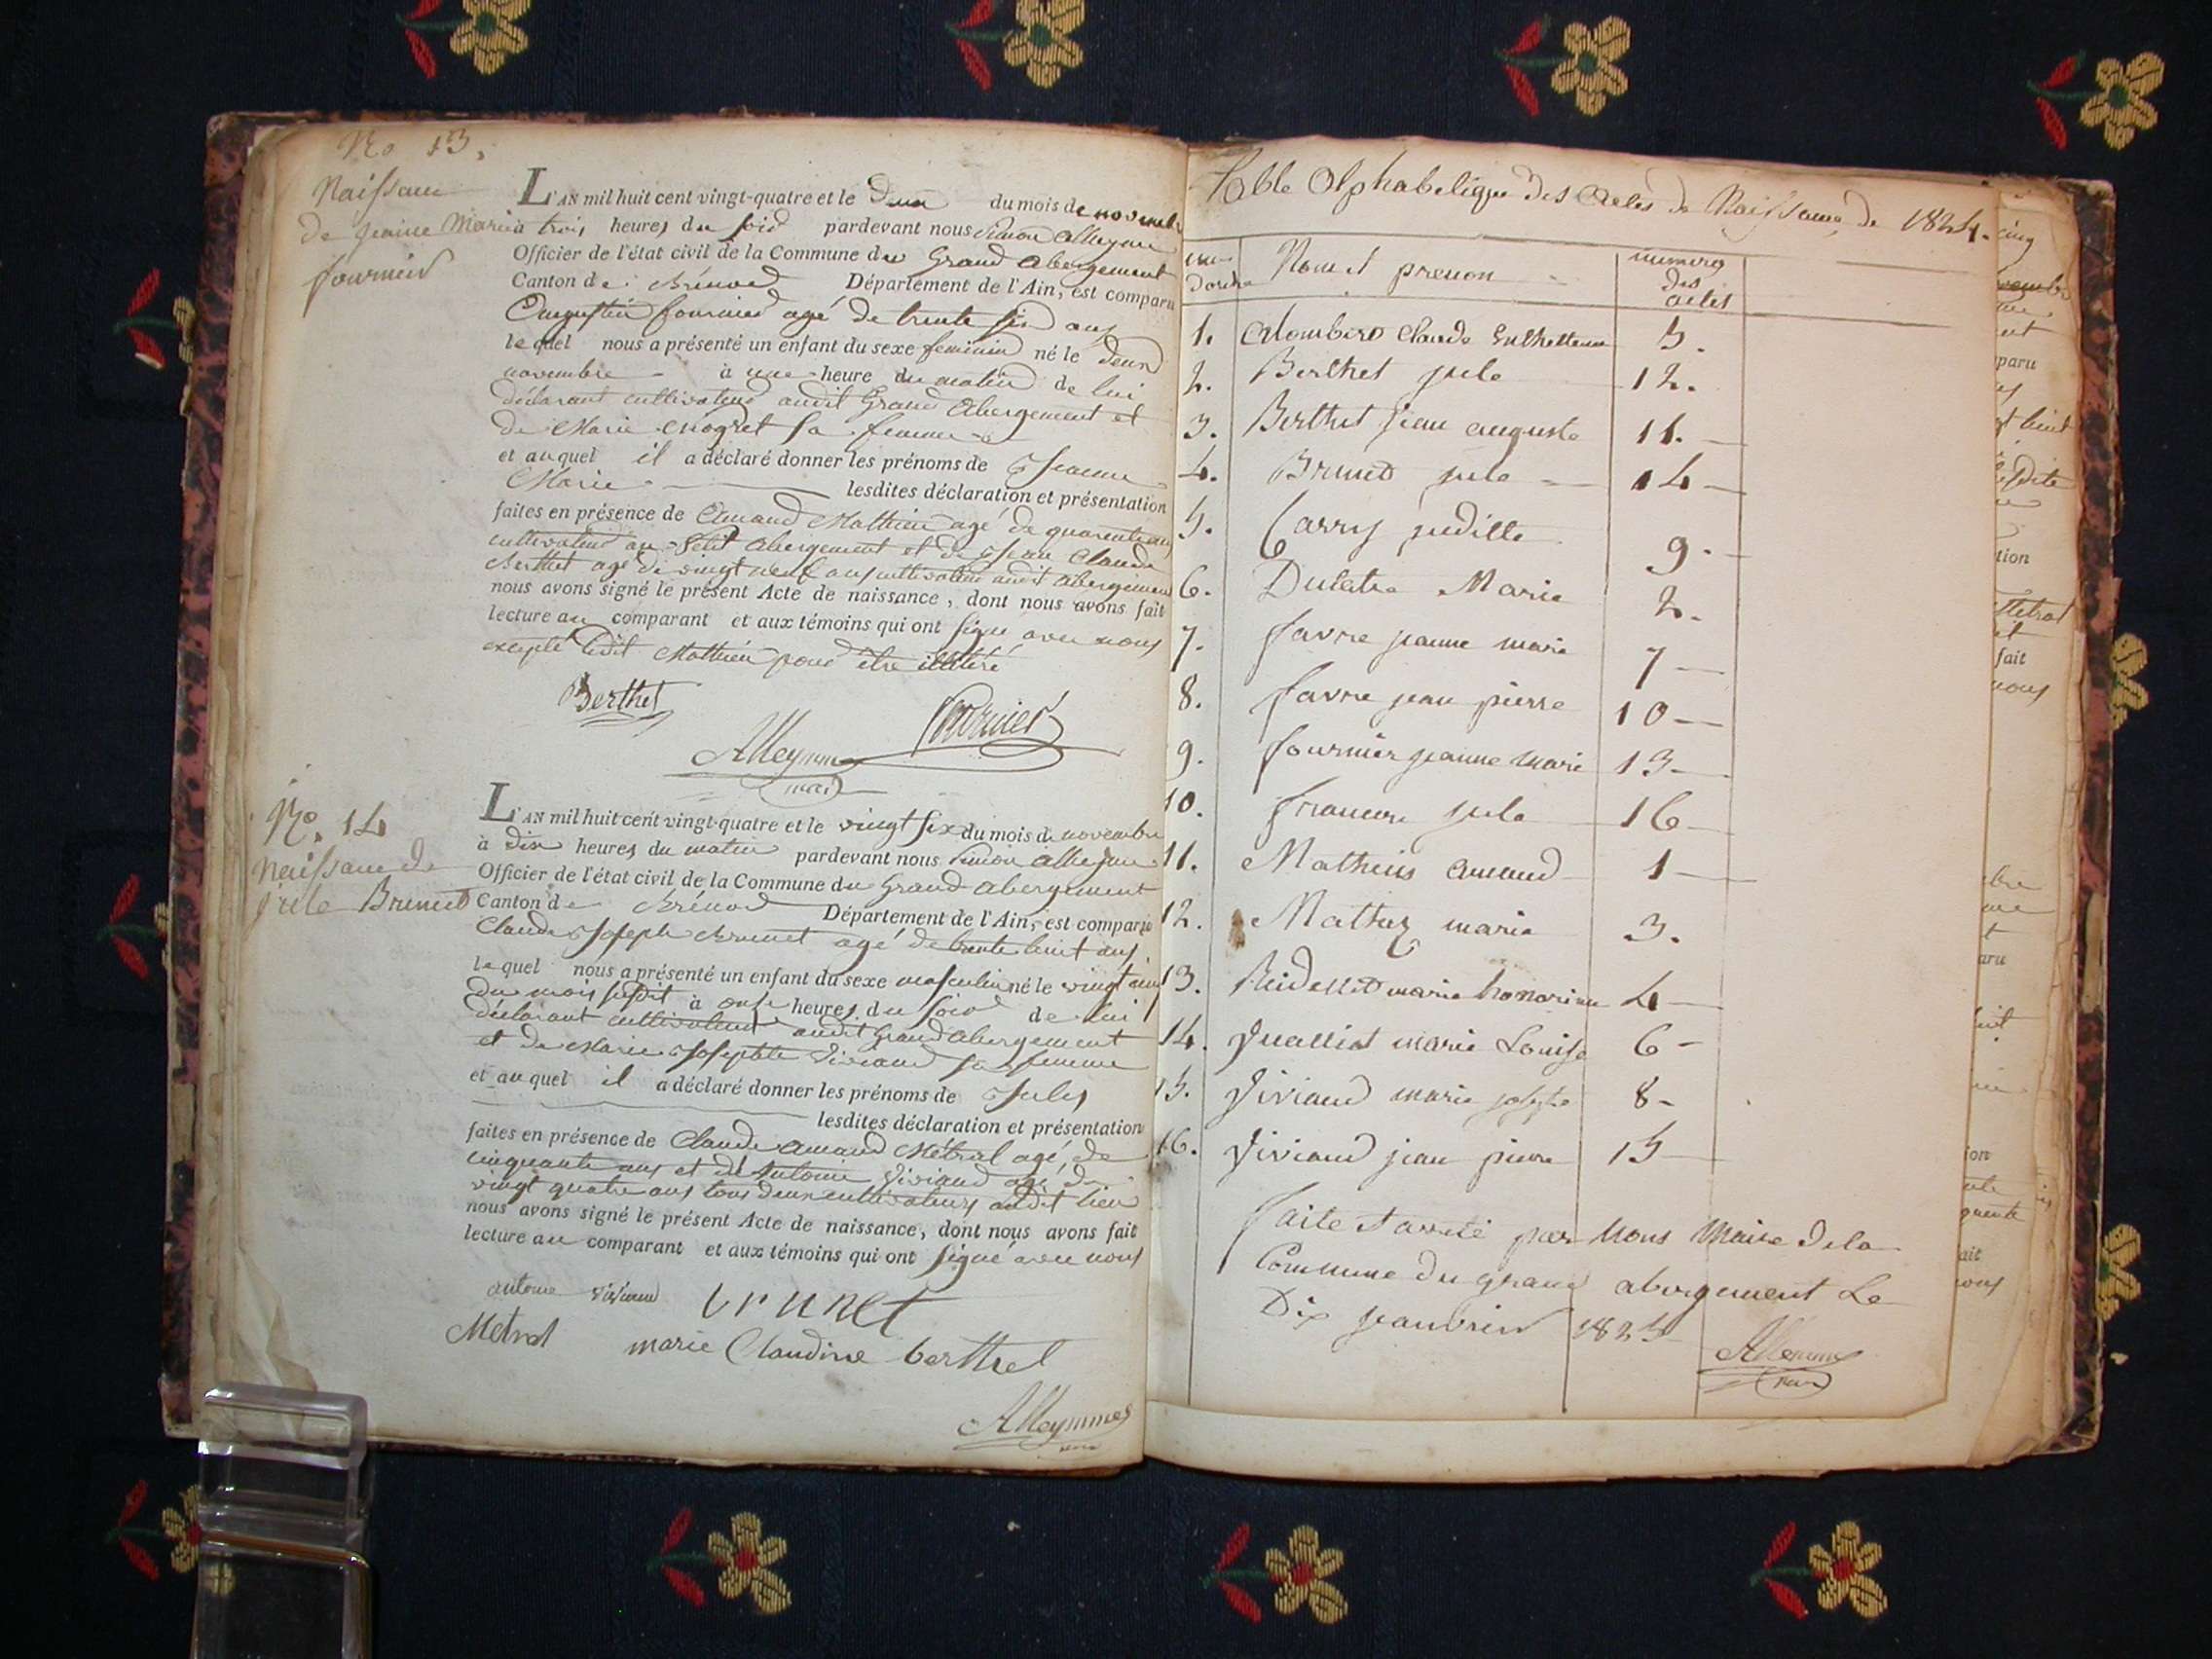 No 13.
Naissance
de jeanne Marie
fournier
L'AN mil huit cent vingt-quatre et le deux du mois de novembre
à trois heures du soir pardevant nous Simon Alleymm
Officier de l'état civil de la Commune du Grand abergement
Canton de Brénod Département de l'Ain, est comparu
Augustin fournier agé de trente six ans
lequel nous a présenté un enfant du sexe feminin né le deux
novembre à une heure du matin de lui
déclarant cultivateur audit Grand Abergement et
de Marie sa femme
et auquel il a déclaré donner les prénoms de Jeanne
Marie lesdites déclaration et présentation
faites en présence de Amand Matthieu agé de quarente ans
cultivateur au Petit Abergement et de Jean Claude
Berthet agé de vingt neuf ans cultivateur audit abergement
nous avons signé le présent Acte de naissance, dont nous avons fait
lecture au comparant et aux témoins qui ont signé avec nous
excepté ledit Matthieu pour être illitéré
Berthet
fournier
Alleymm
maire
No. 14
Naissance de
jule Brunet
L'AN mil huit cent vingt-quatre et le vingt six du mois de novembre
à dix heures du matin pardevant nous Simon Alleymm
Officier de l'état civil de la Commune du Grand abergement
Canton de Brénod Département de l'Ain, est comparu
Claude Joseph Brunet agé de trente huit ans
lequel nous a présenté un enfant du sexe masculin né le vingt cinq
du mois susdit à onze heures du soir de lui
déclarant cultivateur audit Grand Abergement
et de Marie Josephte Viviand sa femme
et auquel il a déclaré donner les prénoms de Jules
lesdites déclaration et présentation
faites en présence de Claude Amand Métral agé de
cinquante ans et de Antoine Viviand agé de
vingt quatre ans tous deux cultivateurs audit lieu
nous avons signé le présent Acte de naissance, dont nous avons fait
lecture au comparant et aux témoins qui ont signé avec nous
antoine viviand brunet
Metral marie Claudine berthet
Alleymm
Table Alphabetique des actes de Naissance de 1824.
Nom et prenon numeros
d'ordre des
actes
1. Colombero Claude 5.
2. Berthet jule 12.
3. Berthet jean auguste 11.
4. Brunet jule 14
5. Carry juditte 9.
6. Dulatre Marie 2.
7. favre jeanne marie 7
8. favre jean pierre 10
9. fournier jeanne marie 13
10. jule 16
11. Mathieu amand 1
12. Mathey marie 3.
13. marie honorine 4
14. Marie Louise 6
15. Viviand marie josephte 8
16. Viviand jean pierre 15
faite et arreté par Nous Maire de la
Commune du grand abergement Le
Dix janvier 1825
Alleymm
maire